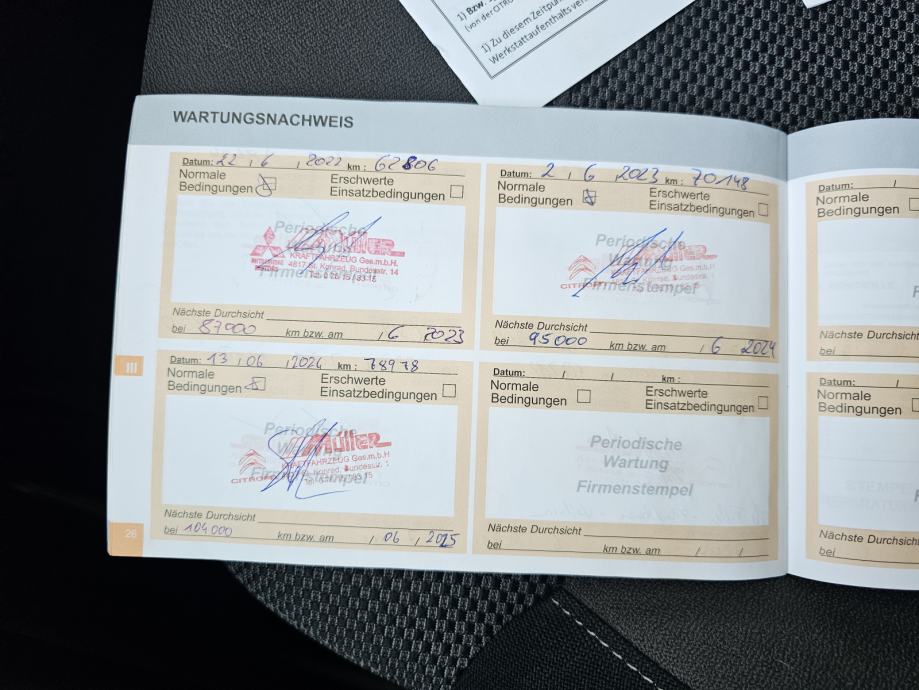 1) Bzw.
(von der CITRO
1) Zu diesem Zeitpun
Werkstattaufenthalts ver
WARTUNGSNACHWEIS
Datum: 22 , 6 , 2022 km : 62806
Normale Bedingungen
Erschwerte Einsatzbedingungen
Periodische
Wartung
Firmenstempel
MÜLLER
KRAFTFAHRZEUG Ges.m.b.H.
4817 St. Konrad, Bundesstr. 14
Nächste Durchsicht
bei 87000 km bzw. am , 6 2023
Datum: 2 , 6 2023 km : 70148
Normale Bedingungen
Erschwerte Einsatzbedingungen
Periodische
Wartung
Firmenstempel
CITROËN
KRAFTFAHRZEUG Ges.m.b.H
Nächste Durchsicht
bei 95000 km bzw. am , 6 2024
III
Datum: 13 , 06 , 2024 km : 78978
Normale Bedingungen
Erschwerte Einsatzbedingungen
Periodische
Wartung
Firmenstempel
Müller
CITROËN
KRAFTFAHRZEUG Ges.m.b.H
St. Konrad, Bundesstr. 1
Nächste Durchsicht
bei 104000 km bzw. am / 06 , 2025
26
Datum: / / km :
Normale Bedingungen
Erschwerte Einsatzbedingungen
Periodische
Wartung
Firmenstempel
Nächste Durchsicht
bei km bzw. am / /
Datum: /
Normale
Bedingungen
Nächste Durchsich
bei
Datum: /
Normale
Bedingungen
Nächste Durchsich
bei